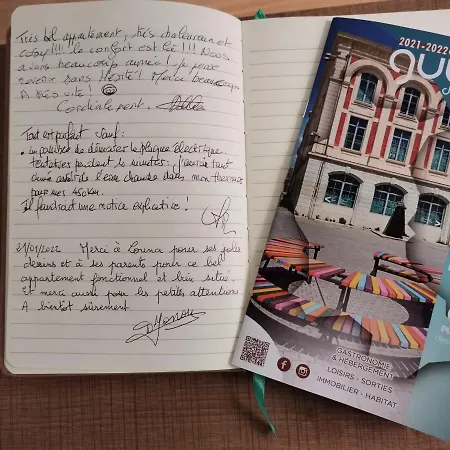 Très bel appartement, très chaleureux et
cosy!!!! le confort est là!!! Nous
avons beaucoup aimé! je peux
revenir sans hésité! Merci beaucoup
A très vite!
Cordialement.
Tout est parfait sauf:
• impossible de démarrer la plaque électrique
tentatives pendant 10 minutes: j'aurais tant
aimé avoir de l'eau chaude dans mon thermos
pour mes 450km.
Il faudrait une notice explicative!
21/01/2022 Merci à Louna pour ses jolis
dessins et à ses parents pour ce bel
appartement fonctionnel et bien situé.
Et merci aussi pour les petites attentions
A bientôt sûrement.
2021-2022
GASTRONOMIE
& HÉBERGEMENT
LOISIRS - SORTIES
IMMOBILIER - HABITAT